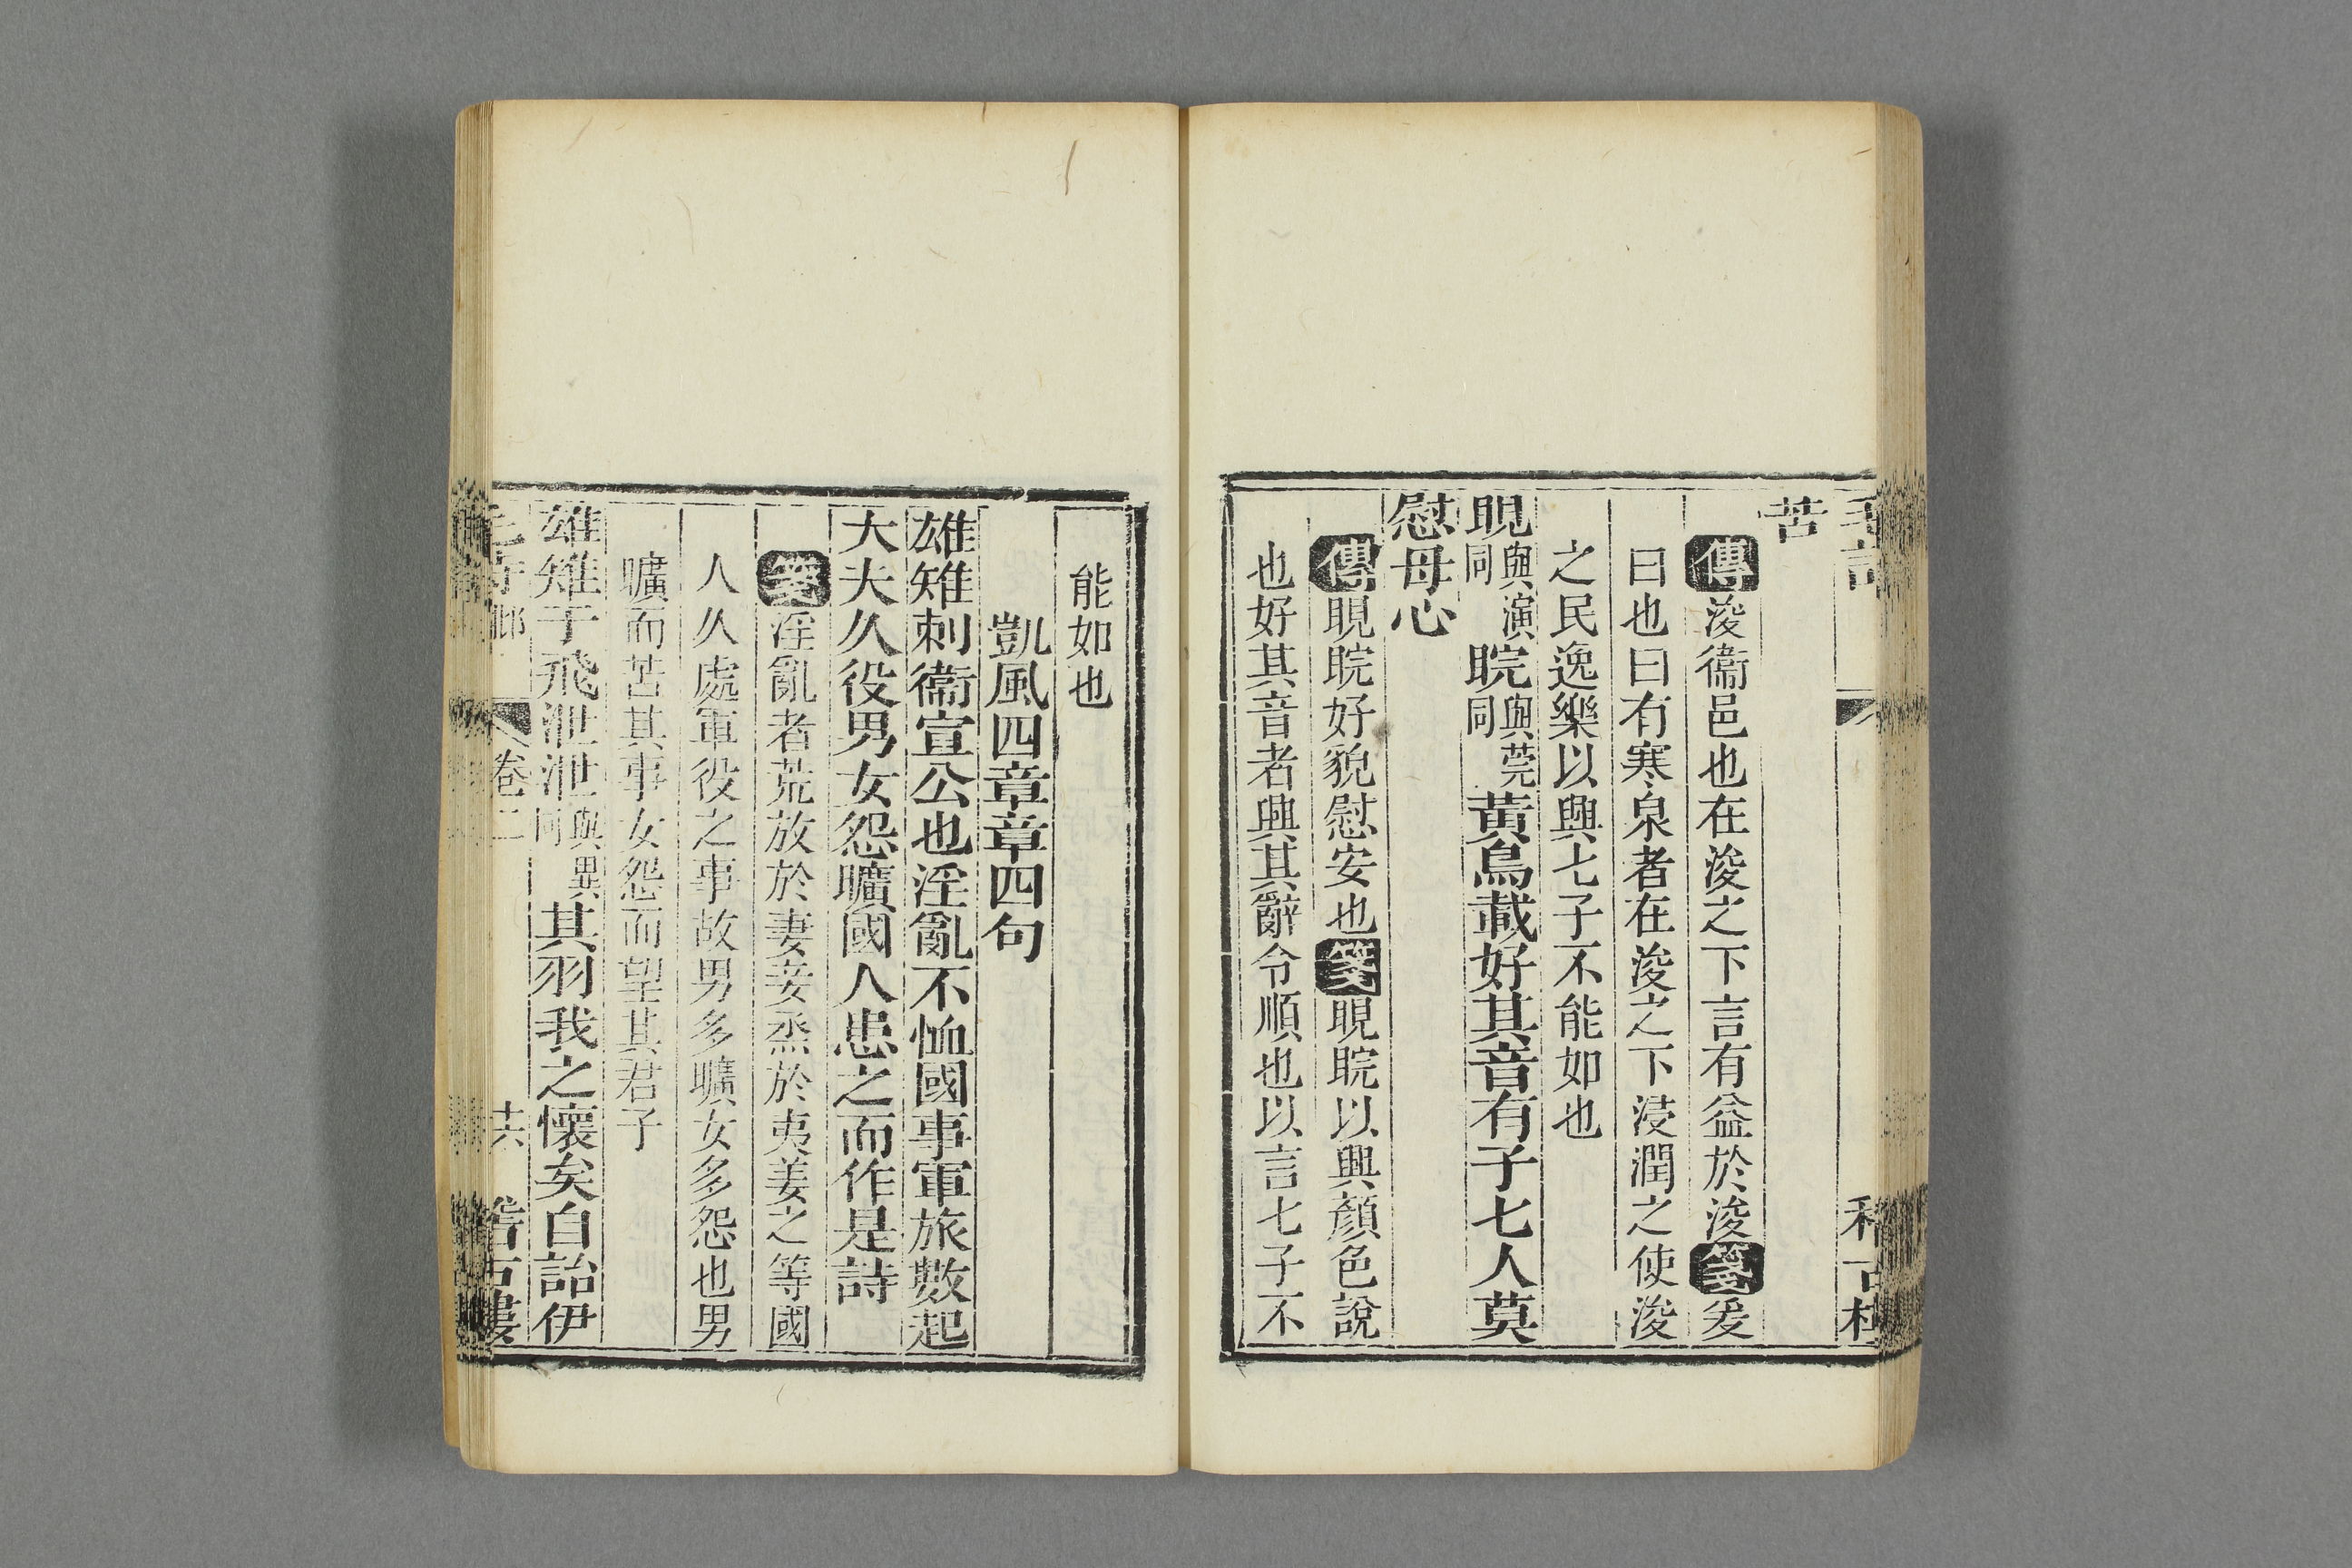 苦
傳浚衞邑也在浚之下言有益於浚箋爰
曰也曰有寒泉者在浚之下浸潤之使浚
之民逸樂以興七子不能如也
睍與演同睆與莞同黃鳥載好其音有子七人莫
慰母心
傳睍睆好貌慰安也箋睍睆以興顏色說
也好其音者興其辭令順也以言七子不
能如也
凱風四章章四句
雄雉刺衞宣公也淫亂不恤國事軍旅數起
大夫久役男女怨曠國人患之而作是詩
箋淫亂者荒放於妻妾烝於夷姜之等國
人久處軍役之事故男多曠女多怨也男
曠而苦其事女怨而望其君子
雄雉于飛泄泄與異同其羽我之懷矣自詒伊
卷二